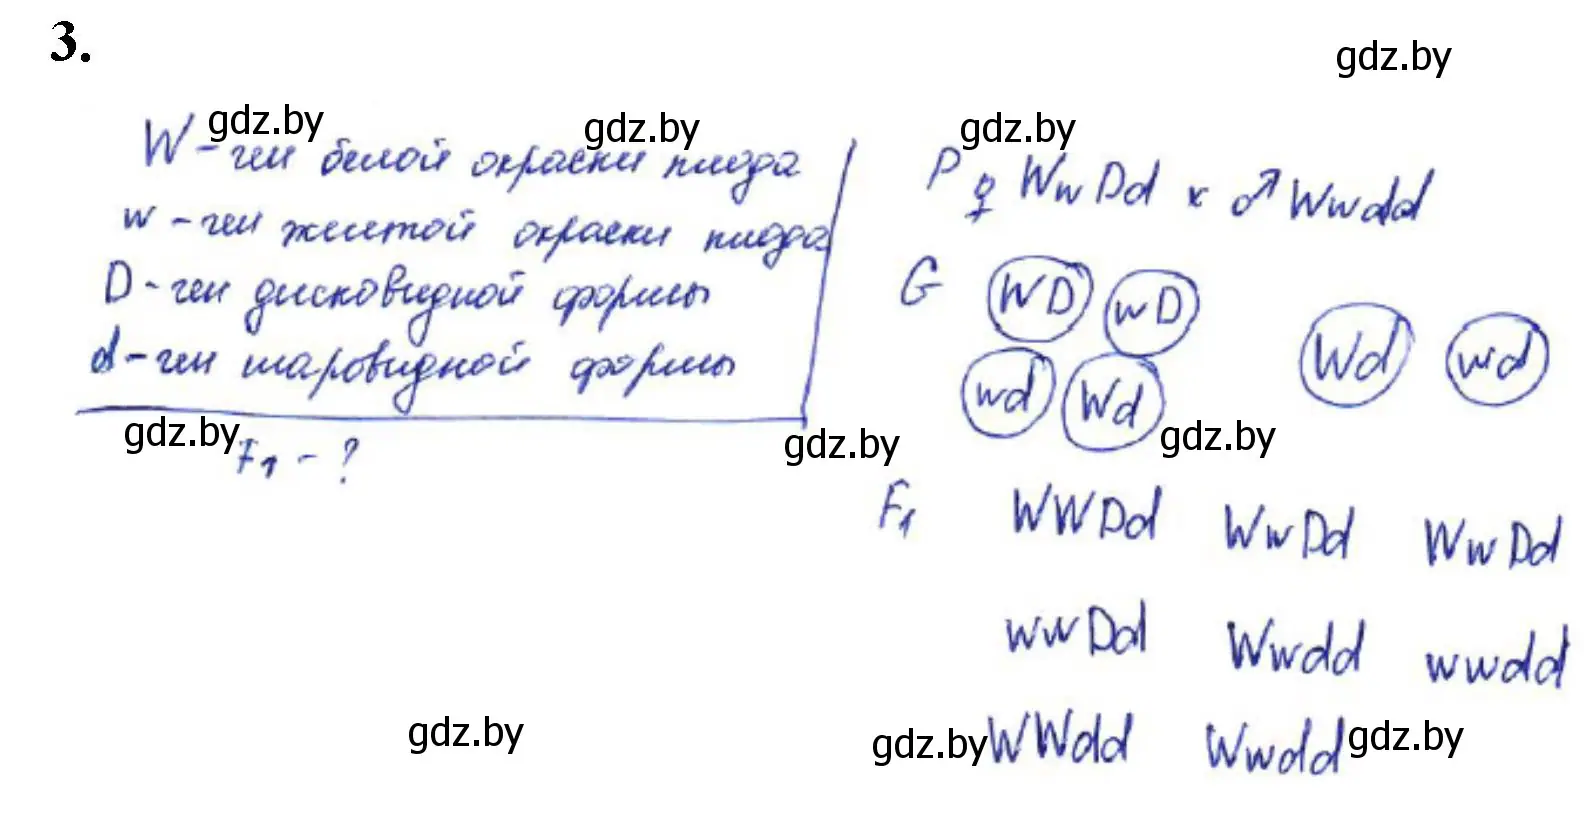 3.
gdz.by
gdz.by gdz.by gdz.by
W - ген белой окраски плода
w - ген желтой окраски плода
D - ген дисковидной формы
d - ген шаровидной формы
gdz.by
F1 - ?
P ♀ WwDd x ♂ Wwdd
G WD wD Wd wd
wd Wd
gdz.by gdz.by
F1 WWDd WwDd WwDd
wwDd Wwdd wwdd
gdz.by gdz.by WWdd Wwdd gdz.by